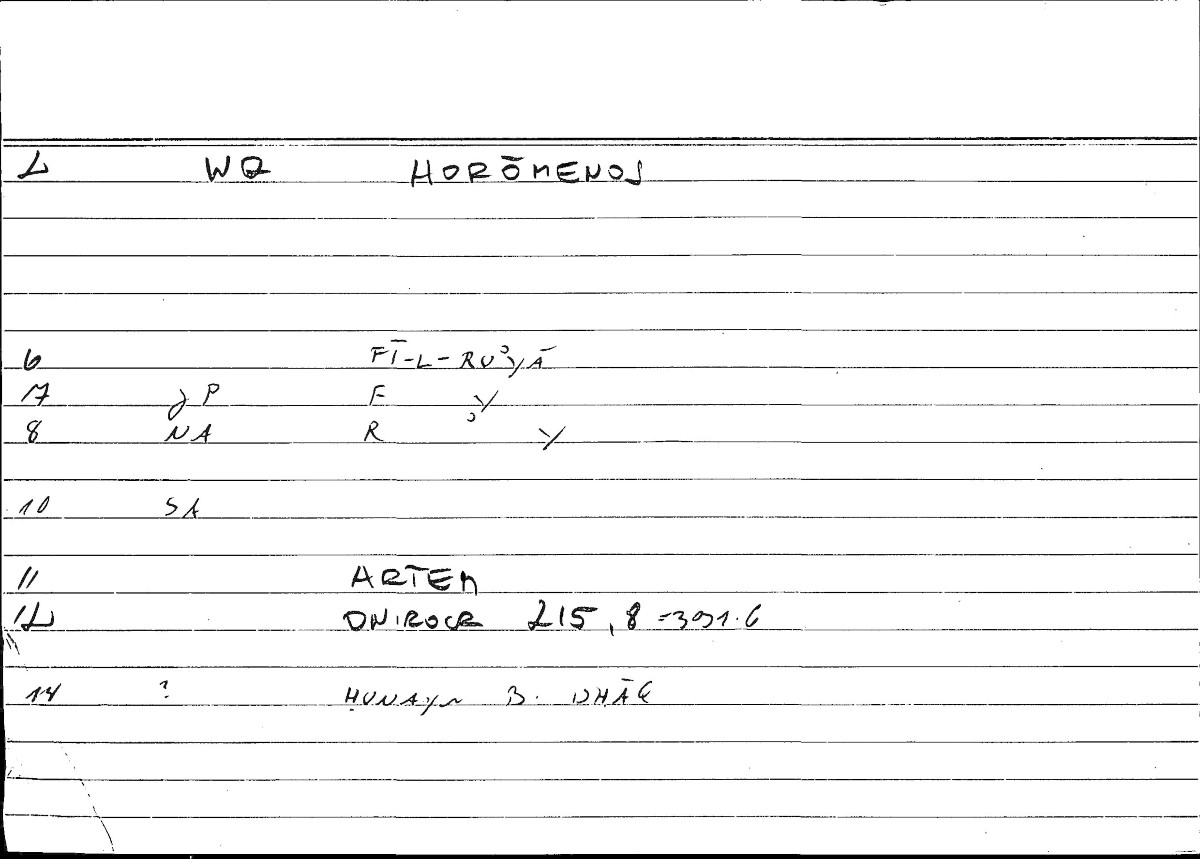 2 WQ HORŌMENOS
6 FĪ-L-RUʾYĀ
7 JP F Y
8 NA R Y
10 SA
11 ARTEM
12 ONIROCR 215, 8 = 391.6
14 ? ḤUNAYN B. ISḤĀQ